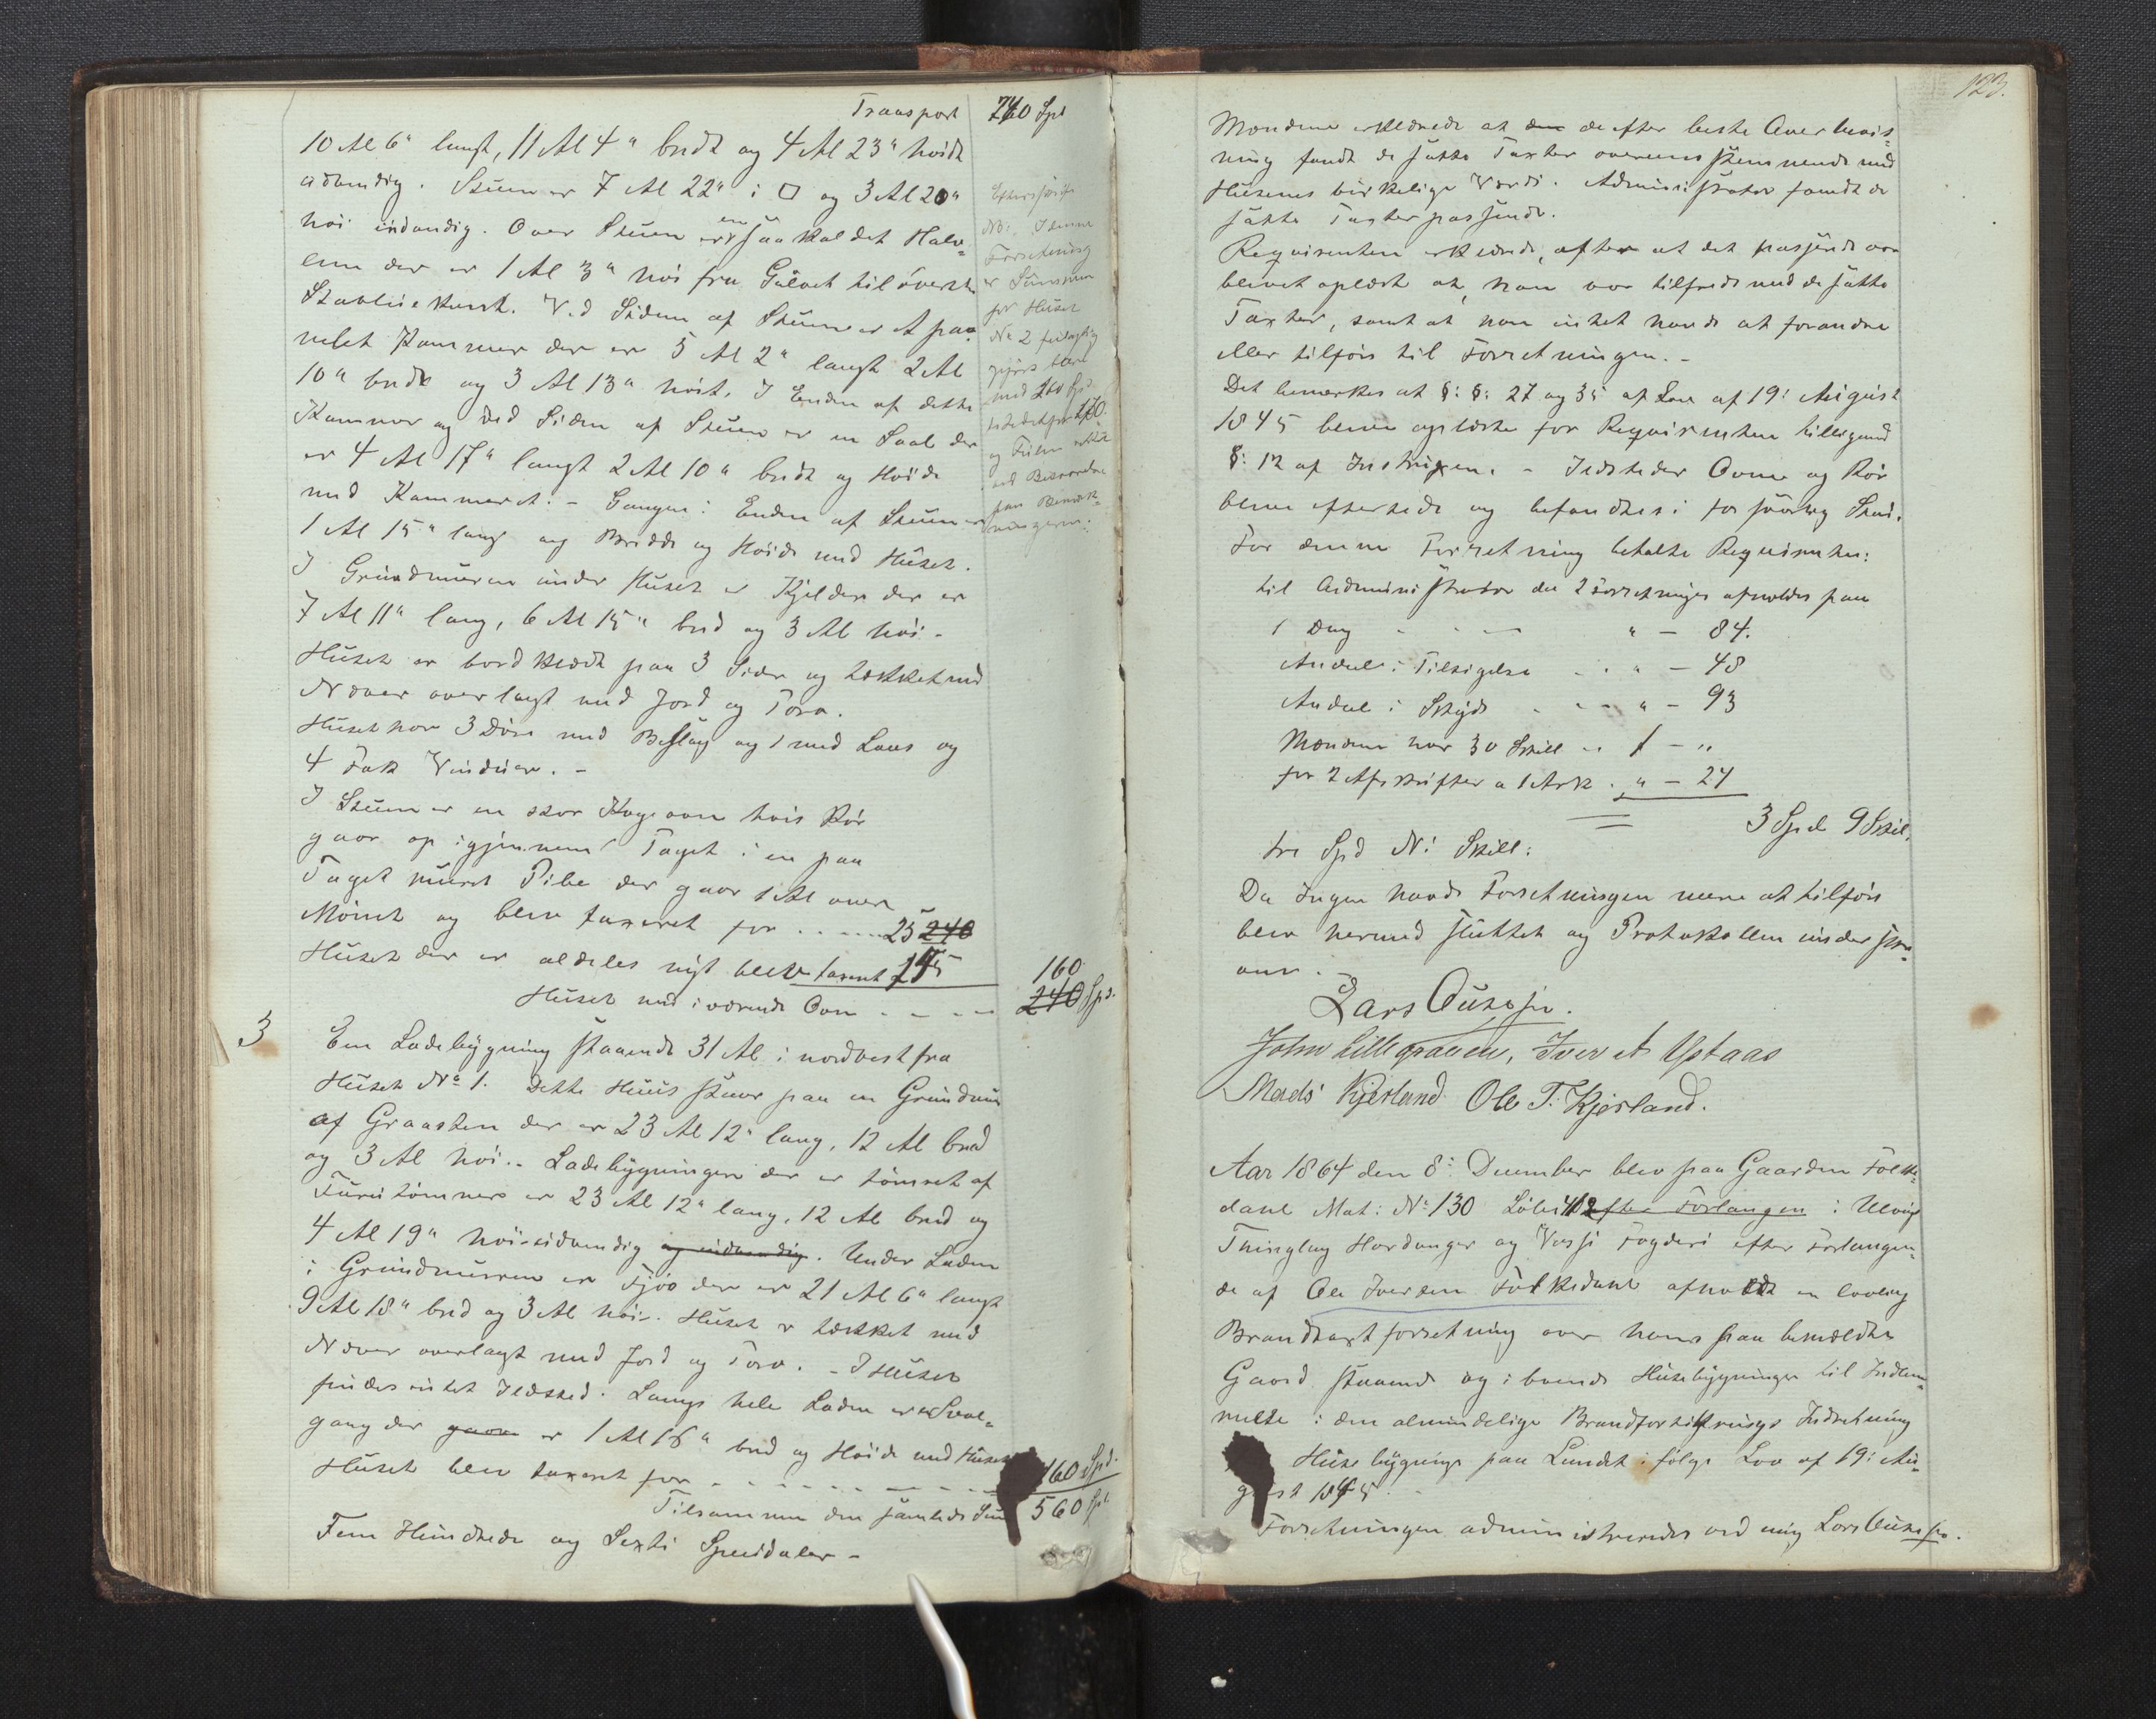 Transport 240 Spd
10 Al 6" langt, 11 Al 4" bredt og 4 Al 23" høidt
udvendig. Stuen er 7 Al 22" i □ og 3 Al 20"
høi indvendig. Over Stuen er en saakaldet Halv-
lem der er 1 Al 3" høi fra Gulvet til øverste
Stavliekant. Ved Siden af Stuen er et pa-
nelet Kammer der er 5 Al 2" langt 2 Al
10" bredt og 3 Al 13" høit. I Enden af dette
Kammer og ved Siden af Stuen er en Sval der
er 4 Al 17" langt 2 Al 10" bredt og Høide
med Kammeret. - Gangen i Enden af Stuen er
1 Al 15" lang og Bredde og Høide med Huset.
I Grundmuren under Huset er Kjelder der er
7 Al 11" lang, 6 Al 15" bred og 3 Al høi -
Huset er bordklædt paa 3 Sider og tækket med
Næver overlagt med Jord og Torv.
Huset har 3 Døre med Beslag og 1 med Laas og
4 Fak Vinduer. -
I Stuen er en stor Kogeovn hvis Rør
gaar op igjennem Taget i en paa
Taget muret Pibe der gaar 1 Al over
Mønet og blev taxeret for . . . . 25 240
Huset der er aldeles nyt blev taxeret
Huset med iværende Ovn - - - - 160 240 Spd.
Efterskrift
NB: I denne
Forretning
er Summen
for Huset
No 2 feilagtig
med
og
paa Bemærk-
ningerne:
3
Em Ladebygning staaende 31 Al i nordvest fra
Huset No 1. Dette Huus staar paa en Grundmur
af Graasten der er 23 Al 12" lang, 12 Al bred
og 3 Al høi. - Ladebygningen der er tømret af
Furutømmer er 23 Al 12" lang, 12 Al bred og
4 Al 19" høi udvendig og indvendig. Under Laden
i Grundmuren er Fjøs der er 21 Al 6" langt
9 Al 18" bred og 3 Al høi -. Huset er tækket med
Næver overlagt med Jord og Torv. - I Huset
findes intet Ildsted. Langs hele Laden er en Sval-
gang der gaar er 1 Al 16" bred og Høide med Huset
Huset blev taxeret for - - - - - - - 160 Spd.
Tilsammen den samlede Sum 560 Spd.
Fem Hundrede og Sexti Speciedaler -
123.
Mændene erklærede at den de efter beste Overbevis-
ning fandt de satte Taxter overensstemmende med
Husenes virkelige Værdi. Administrator fandt de
satte Taxter passende.
Requirenten erklærede, efter at det passerede var
blevet oplæst at, han var tilfreds med de satte
Taxter, samt at han intet havde at forandre
eller tilføie til Forretningen. -
Det bemærkes at §: §: 27 og 35 af Lov af 19: August
1845 bleve oplæste for Requirenten tilligemed
§: 12 af Instruxen. - Ildsteder Ovne og Rør
bleve efterseede og befandtes i forsvarlig Stand.
For denne Forretning betalte Requirenten:
til Administrator da 2 Forretninger afholdes paa
1 Dag - - - " - 84.
Andel i Tilsigelse . . " - 48
Andel i Skyds . - - " - 93
Mændene hver 30 Skill er 1 - "
for 2 Afskrifter a 1 Ark . " - 24
3 Spd 9 Skil.
tre Spd Ni Skill:
Da Ingen havde Forretningen mere at tilføie
blev hermed sluttet og Protokollen underskre-
ven.
Lars Ousesfn.
John Lillegraven, Iver A Ystaas
Mads Kjerland Ole T. Kjerland.
Aar 1864 den 8: December blev paa Gaarden Folke-
dahl Mat: No 130 Løbe 412 efter Forlangen i Ulvigs
Thinglag Hardanger og Vossi Fogderi efter Forlangen-
de af Ole Iversen Folkedahl afholdt en lovlig
Brandtaxtforretning over hans paa bemældte
Gaard staaende og iboende Husebygninger til Indlem-
melse i den almindelige Brandforsikkrings Indretning
Husebygninger paa Landet i følge Lov af 19: Au-
gust 1845 . .
Forretningen administreredes ved mig Lars Ousesfn.